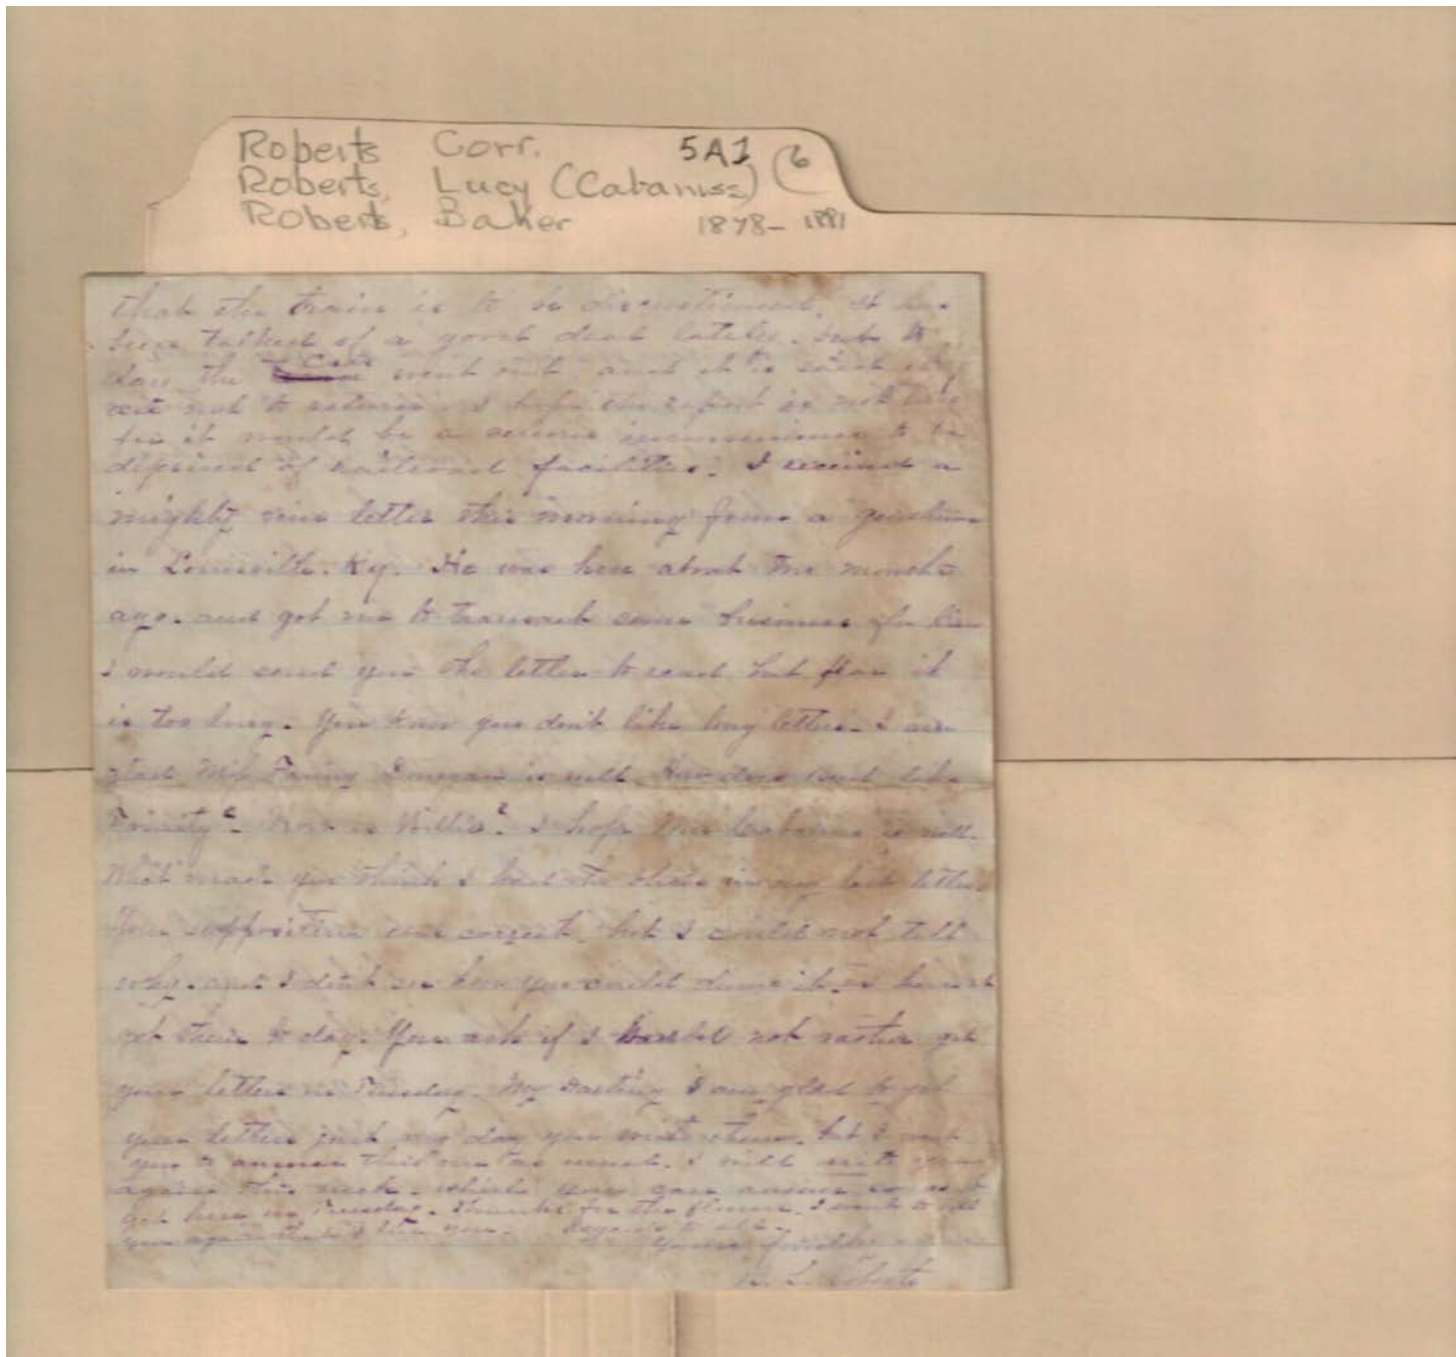 Roberts Corr. 5A1 (6
Roberts, Lucy (Cabaniss)
Roberts, Baker 1878-1881
that the train is to be discontinued, it has
been talked of a good deal lately. but to
day the Cars went out and it is said
not to return. I hope the report is not true
for it would be a serious inconvenience to be
deprived of railroad facilities. I received a
mighty nice letter this morning from a gentleman
in Louisville. Ky. He was here about two months
ago. and got me to transact some business for him
I would send you the letter to read but fear it
is too long. You know you don't like long letters. I am
glad Miss Fanny is well. How does like
Trinity? How is Willie? I hope Mrs Cabaniss is well.
What made you think I had the in my last letter.
Your supposition was correct, but I could not tell
why. and I don't see how you could
get to day. You ask if I would not rather get
your letter on Tuesday. My Darling I am glad to get
your letters just any day you write them. but I want
you to answer this one as usual. I will write you
again this week. which you can answer so as to
get here on Tuesday. Thanks for the flowers. I want to tell
you again that I love you. Regards to all.
Yours
B. L. Roberts